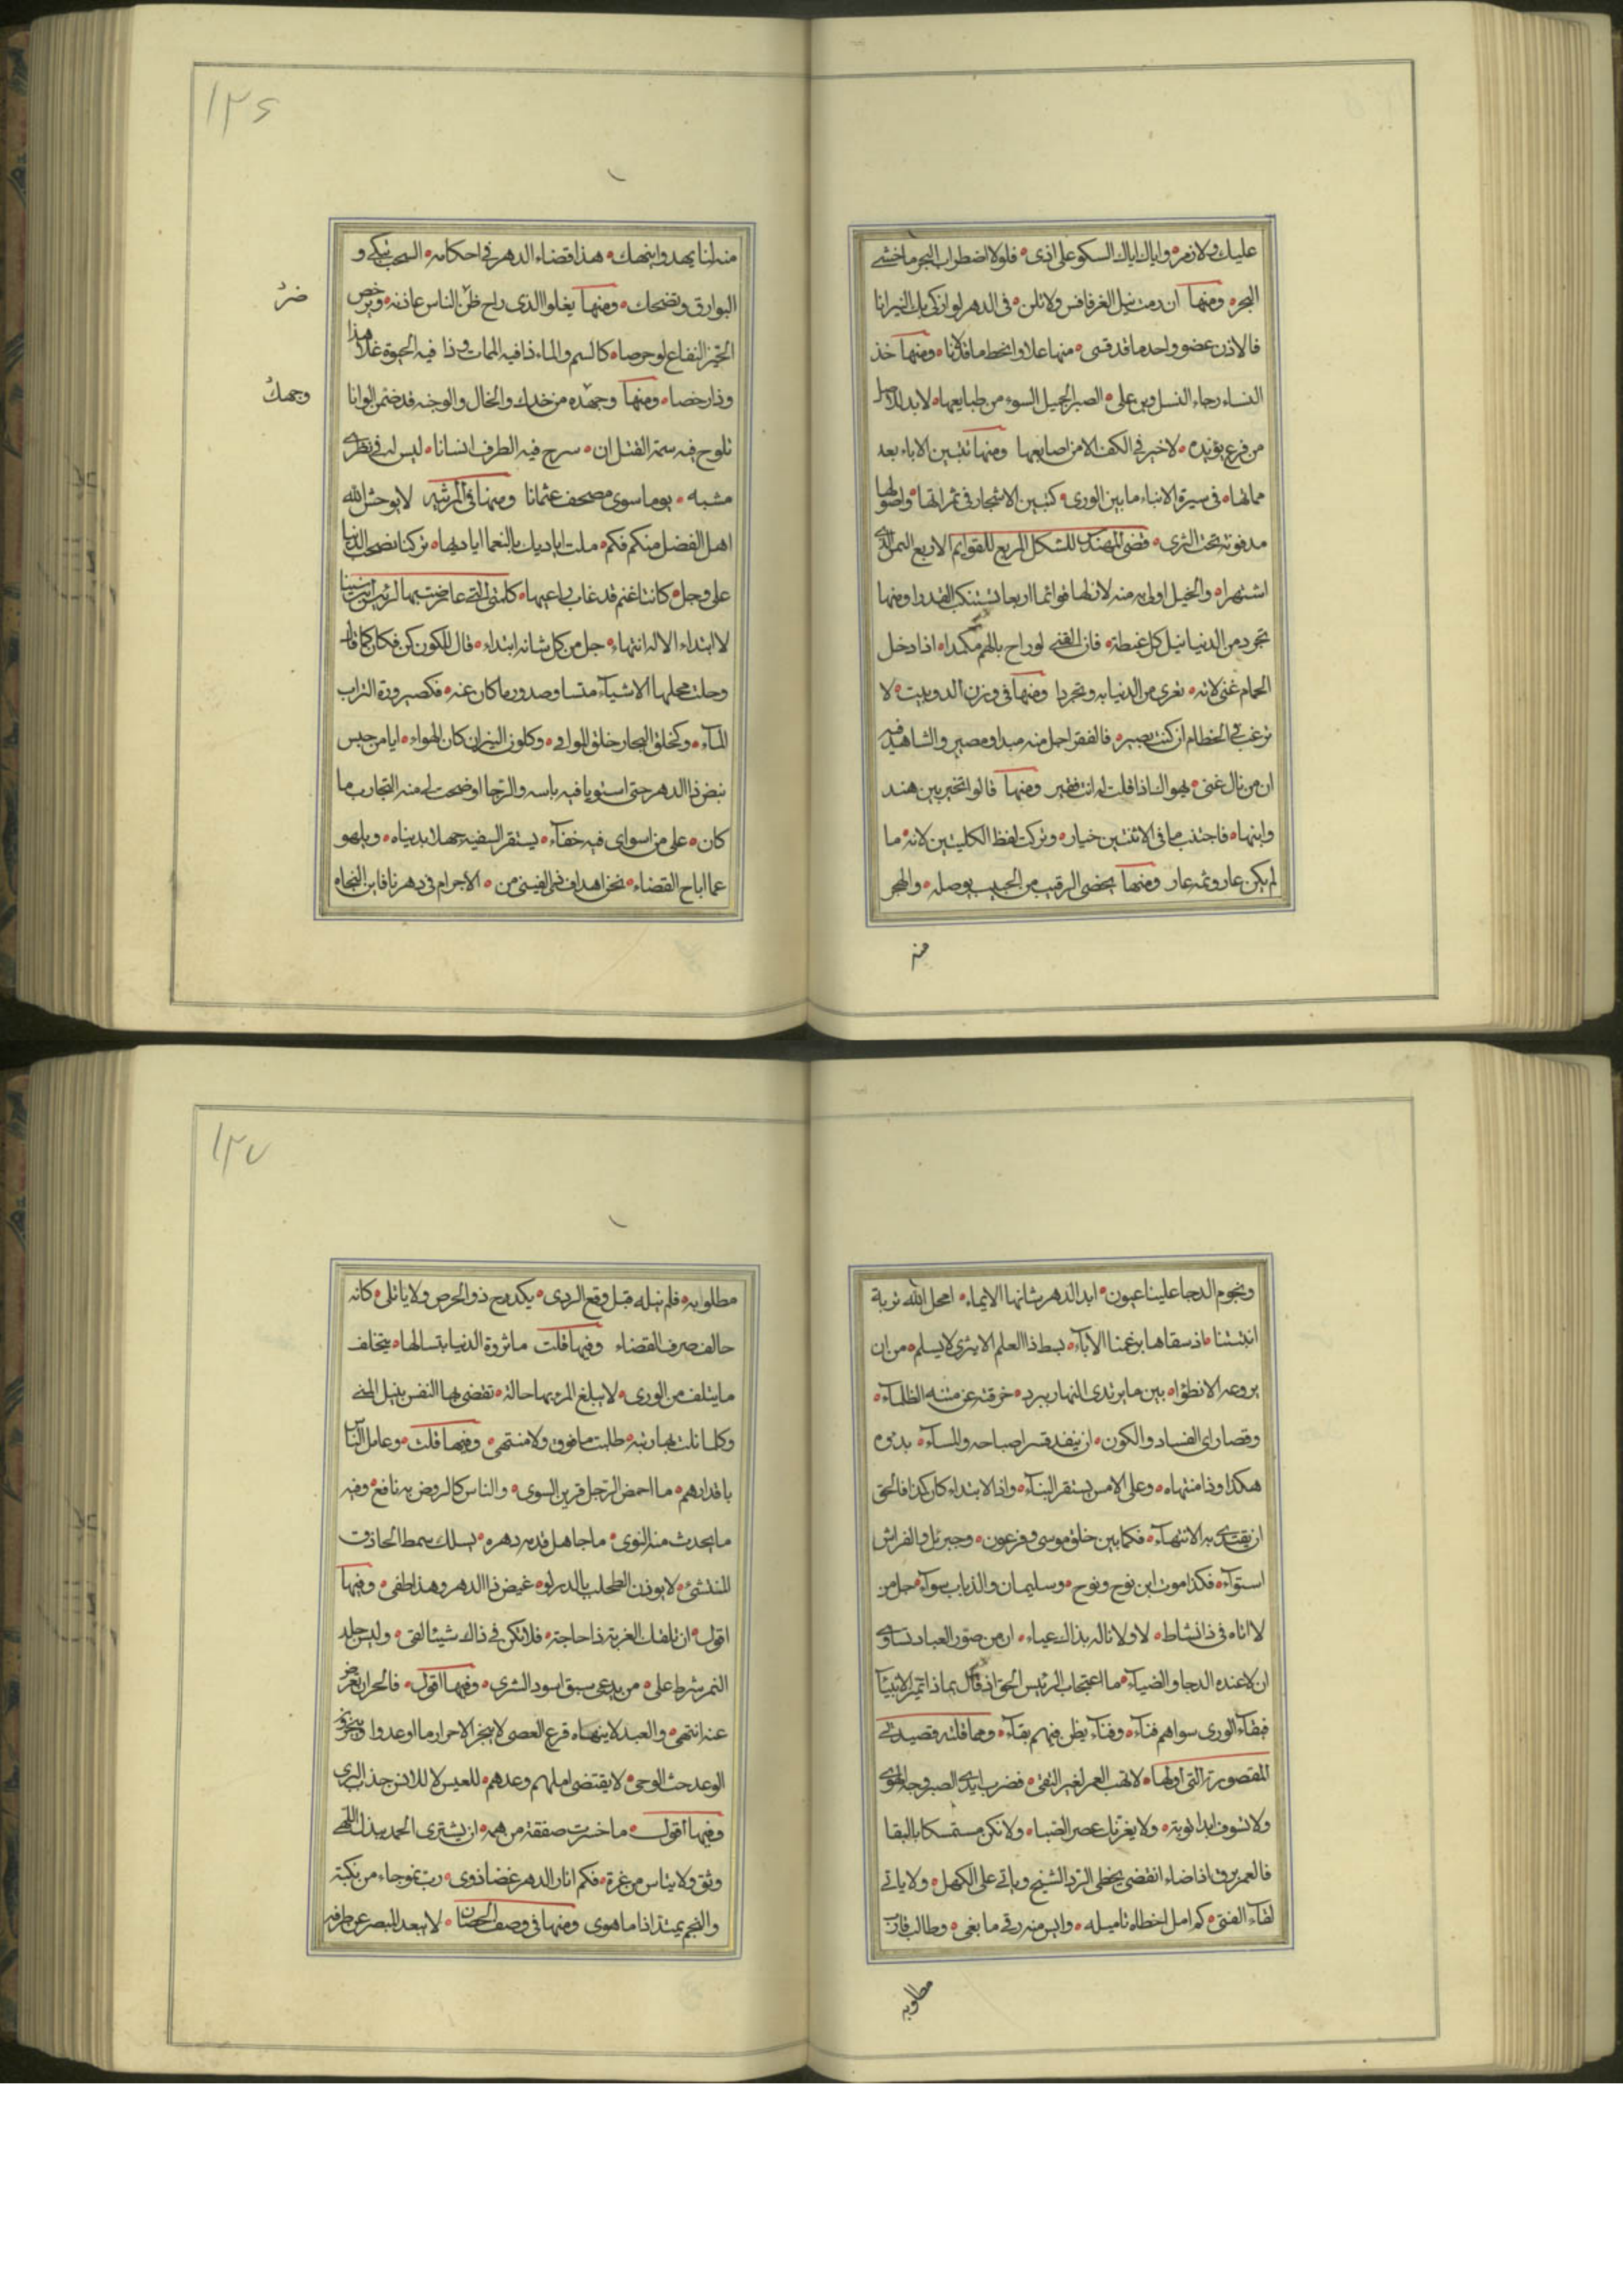 عليك ولازم وواياك اياك السكو على اذى فلولا اضطراب البحر ما خشى
البحر ومنها ان رمت نيل الغر فاقس ولا تلن فى الدهر لو اذكى بك النيرانا
فالاذن عضو واحد ما قد قسى منها علا وانحط ما قد لانا ومنها خذ
النساء رجاء النسل وبن على الصبر الجميل السوء من طبايعها لا بد
من فرع يؤيده لا خير فى الكف الا من اصابعها ومنها تتبين الاباء بعد
مماتها فى سيرة الابناء ما بين الورى كتبين الاشجار فى ثمراتها واصولها
مدفونة تحت الثرى قضى المهندس للشكل المربع للقوايم الاربع
اشتهرا والخيل اولى به منه لان لها قوائما اربعا تستنكب الغدرا ومنها
تجرد من الدنيا تنيل كل غبطة فان الغنى لو راح بالهم مكمدا اذا دخل
الحمام غنى لانه تعرى من الدنيا به وتجردا ومنها فى وزن الدوبيت لا
ترغب فى الحطام ان كنت بصير فالفقر اجل منه مبدا ومصير والشاهد فيه
ان من نال غنى يهواك اذا قلت له انت فقير ومنها قالوا تخير بين هند
وابنها فاجتنب ما فى الاثنتين خيار وتركت لفظ الكليتين لانه ما
لم يكن عار وثمه عار ومنها يحضى الرقيب من الحبيب بوصله والهجر
منه
١٢٦
منه لنا يهدوا ينهك هذا قضاء الدهر فى احكامه السحب تبكى و
البوارق وتضحك ومنها يغلوا الذى راح ضر الناس عاذنه ويرخص
ضر
الخير النفاع لو حرصا كالسم والماء ذا فيه الممات وذا فيه الحيوة غلا هذا
وذا رخصا ومنها وجهده من خدك والخال والوجنه قد ضمن الوانا
وجهك
تلوح فيه سمة القتل ان سرح فيه الطرف انسانا ليس له فى نظرى
مشبه يوما سوى مصحف عثمانا ومنها فى المرثيه لا يوحش الله
اهل الفضل منكم فكم ملت اياديك بالنعما اياديها تركتنا نصحب الدنيا
على وجل كاننا غنم قد غاب راعيها كلمتى التى عارضت بها الرئيس ابن سينا
لا ابتداء الا له انتهاء جل من كل شانه ابتداء قال للكون كن فكان كما قال
وحلت محلها الاشياء متساو صدور ما كان عنه فكصيرورة التراب
الماء وكخلق البحار خلق البوادى وكلون النيران كان الهواء ايا من جس
نبض ذا الدهر حتى استويا فيه باسه والرجا اوضحت لى منه التجارب ما
كان على من سواى فيه خفاء يستقر السفيه جهلا بدنياه ويلهو
عما اباح القضاء نحن اهداف من الاجرام فى دهرنا فاين النجاه
ونجوم الدجا علينا عيون ابد الدهر شانها الايماء امحل الله تربة
انبتتنا اذ سقاها برغمنا الاباء بسط ذا العلم الاثرى لا يسلم من ان
يروعه الانطواء بين ما يرتدى النهار ببرد خرقته عن متنه الظلماء
وقصارى الفساد والكون ان ينفد قسرا صباحه والمساء بدئوه
هكذا وذا منتهاه وعلى الامس يستقر البناء واذا الابتداء كان كذا فالحق
ان يقتدى به الانتهاء فكما بين خلق موسى وفرعون وجبريل والفراش
استواء فكذا موت ابن نوح ونوح وسليمان والذباب سواء جل من
لا اتاه فى ذا نشاط لا ولا ناله بذاك عياء ان من صور العباد تساوى
ان لا عنده الدجا والضياء ما اعتجاب الرئيس الحق اذ قال بماذا تميز الانبياء
فبقاء الورى سواهم فناء وفناء يظن فيهم بقاء ومما قلته قصيدتى
المقصورة التى اولها لا تهب العمر لغير التقى فضرب ايدى الصبر وجه الهوى
ولا تسوف ابدا توبة ولا يغرنك عصر الصبا ولا تكن مستمسكا بالبقا
فالعمر برق اذا ضاء انقضى يخطى الردى الشيخ وياتى على الكهل ولا ياتى
لقاء الفتى كم امل اخطاه تاميله وايس منه رقى ما بغى وطالب قارب
مطلوبه
١٢٧
مطلوبه فلم ينله قبل وقع الردى يكدح ذو الحرص ولا ياتلى كانه
حالف صرف القضاء وفيها قلت ما ثروة الدنيا بتسالها يتخالف
ما يتلف من الورى لا يبلغ المرء بها حالة تقضى بها النفس بنيل المنى
وكلما نلت بها رتبه طلبت ما فوق ولا منتهى وفيها قلت وعامل الناس
باقدارهم ما احمض الرجل قرين السوى والناس كالروض به نافع وفيه
ما يحدث منه النوى ما جاهل قدمه دهره يسلك سمط الحاذق
المنتشئ لا يوزن الطحلب بالدر لو غيض ذا الدهر وهذا طفى وفيها
اقول ان تلفك الغربة ذا حاجة فلا تكن فى ذاك شيئا لقى وليس جلد
النمر شرط على من يدعى سبق اسود الشرى وفيها اقول فالحر ان تعرض
عنه انتهى والعبد لا ينهاه قرع العصى لا ينجز الاحرار ما اوعدوا وينجزو
الوعد حث الوحى لا يقتضى املهم وعدهم للعيس لا للاتن جذب البرى
وفيها اقول ما خسرت صفقة من همه ان يشترى الحمد ببذل اللهى
وثق ولا يتاس من غرة فكم انار الدهر غضا ذوى رب نمو جاء من نكبة
والنجم يمتد اذا ما هوى ومنها فى وصف الحصان لا يبعد البصر عن طرفه